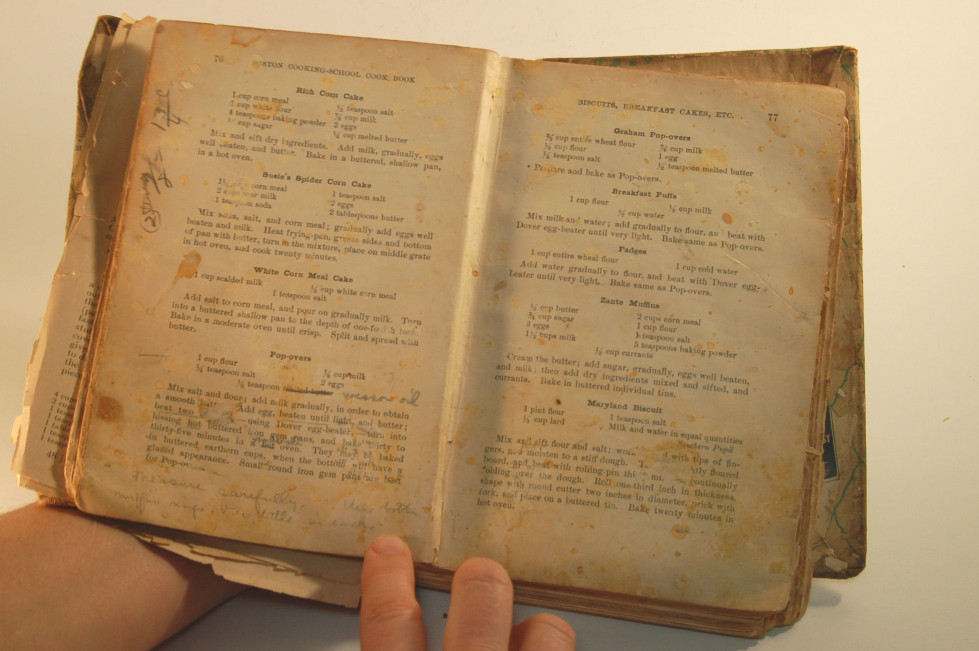 76 BOSTON COOKING-SCHOOL COOK BOOK
Rich Corn Cake
1 cup corn meal
1 cup white flour
4 teaspoons baking powder
cup sugar
½ teaspoon salt
cup milk
2 eggs
cup melted butter
Mix and sift dry ingredients. Add milk, gradually, eggs
well beaten, and butter. Bake in a buttered, shallow pan,
in a hot oven.
Susie's Spider Corn Cake
corn meal
2 cups sour milk
1 teaspoon soda
1 teaspoon salt
2 eggs
2 tablespoons butter
Mix soda, salt, and corn meal; gradually add eggs well
beaten and milk. Heat frying-pan, grease sides and bottom
of pan with butter, turn in the mixture, place on middle grate
in hot oven, and cook twenty minutes.
White Corn Meal Cake
cup scalded milk
cup white corn meal
1 teaspoon salt
Add salt to corn meal, and pour on gradually milk. Turn
into a buttered shallow pan to the depth of one-fourth inch.
Bake in a moderate oven until crisp. Split and spread with
butter.
Pop-overs
1 cup flour
¼ teaspoon salt
cup milk
2 eggs
½ teaspoon melted butter wesson oil
Mix salt and flour; add milk gradually, in order to obtain
a smooth batter. Add egg, beaten until light, and butter;
beat two using Dover egg-beater, turn into
hissing hot buttered iron gem pans, and bake thirty to
thirty-five minutes in a hot oven. They may be baked
in buttered earthern cups, when the bottom will have a
glazed appearance. Small round iron gem pans are best
for Pop-overs.
measure carefully
muffin rings
BISCUITS, BREAKFAST CAKES, ETC. 77
Graham Pop-overs
⅔ cup entire wheat flour
⅓ cup flour
¼ teaspoon salt
⅞ cup milk
1 egg
½ teaspoon melted butter
Prepare and bake as Pop-overs.
Breakfast Puffs
1 cup flour
½ cup milk
½ cup water
Mix milk and water; add gradually to flour, and beat with
Dover egg-beater until very light. Bake same as Pop-overs.
Fadges
1 cup entire wheat flour
1 cup cold water
Add water gradually to flour, and beat with Dover egg-
beater until very light. Bake same as Pop-overs.
Zante Muffins
cup butter
cup sugar
3 eggs
cups milk
2 cups corn meal
1 cup flour
1 teaspoon salt
5 teaspoons baking powder
cup currants
Cream the butter; add sugar, gradually, eggs well beaten,
and milk; then add dry ingredients mixed and sifted, and
currants. Bake in buttered individual tins.
Maryland Biscuit
1 pint flour
⅓ cup lard
1 teaspoon salt
Milk and water in equal quantities
Southern Pupil
Mix and sift flour and salt; with tips of fin-
gers, and moisten to a stiff dough. floured
board, and beat with rolling-pin continually
folding over the dough. Roll one-third inch in thickness,
shape with round cutter two inches in diameter, prick with
fork, and place on a buttered tin. Bake twenty minutes in
hot oven.